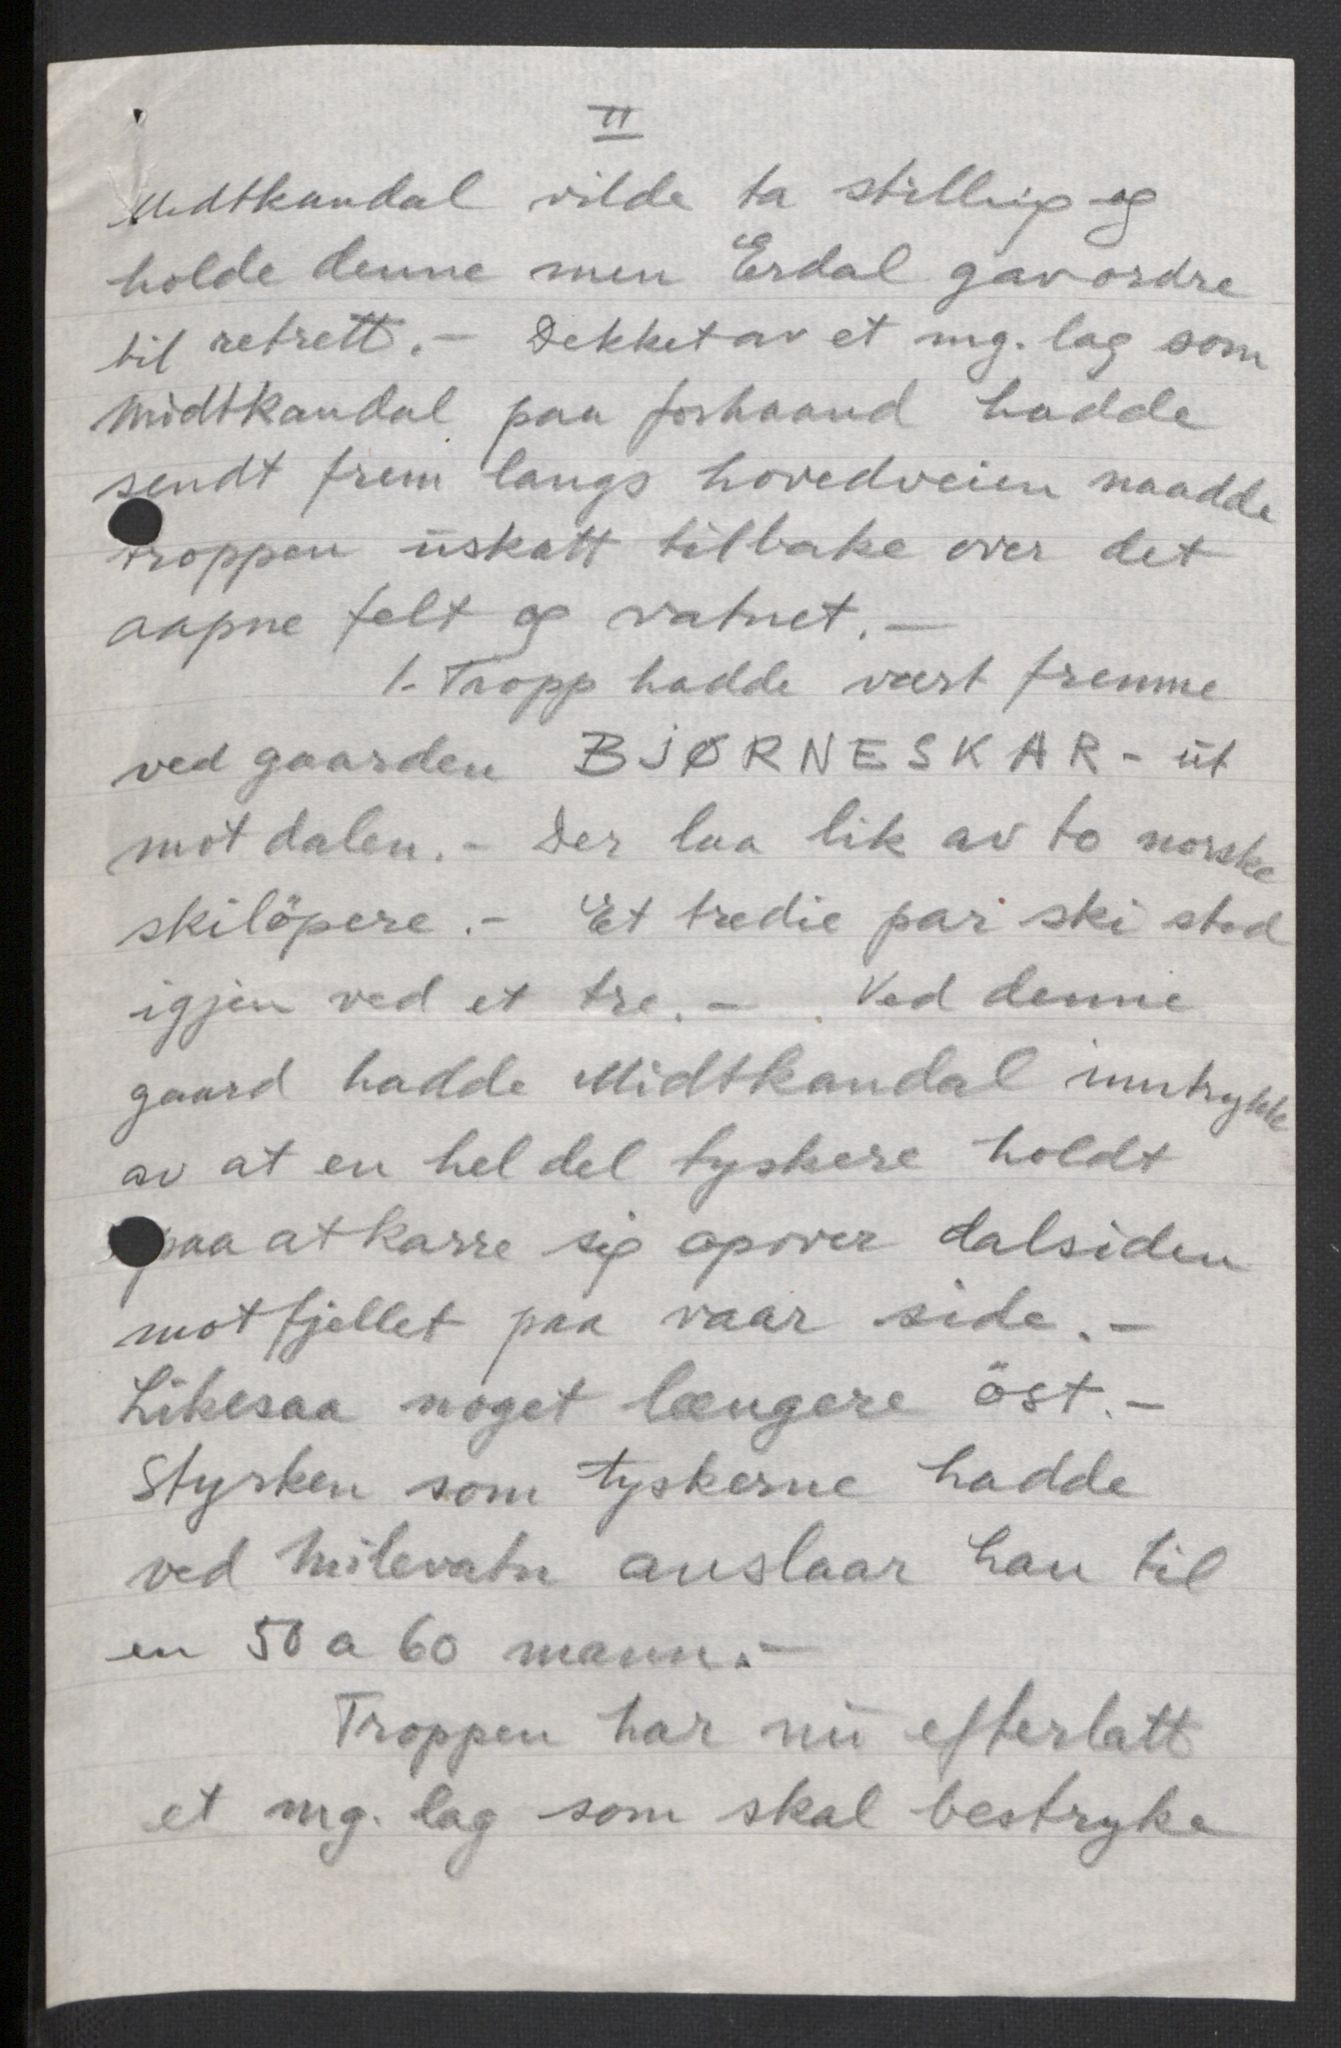 II
Midtkandal vilde ta stilling og
holde denne men Erdal gav ordre
til retrett. - Dekket av et mg. lag som
Midtkandal paa forhaand hadde
sendt frem langs hovedveien naadde
troppen uskatt tilbake over det
aapne felt og vatnet. -
1. Tropp hadde vært fremme
ved gaarden BJØRNESKAR - ut
mot dalen. - Der laa lik av to norske
skilöpere. - Et tredie par ski stod
igjen ved et tre. - Ved denne
gaard hadde Midtkandal inntrykk
av at en hel del tyskere holdt
paa at karre sig opover dalsiden
mot fjellet paa vaar side. -
Likesaa noget længere öst. -
Styrken som tyskerne hadde
ved Milevatn anslaar han til
en 50 a 60 mann. -
Troppen har nu efterlatt
et mg. lag som skal bestryke